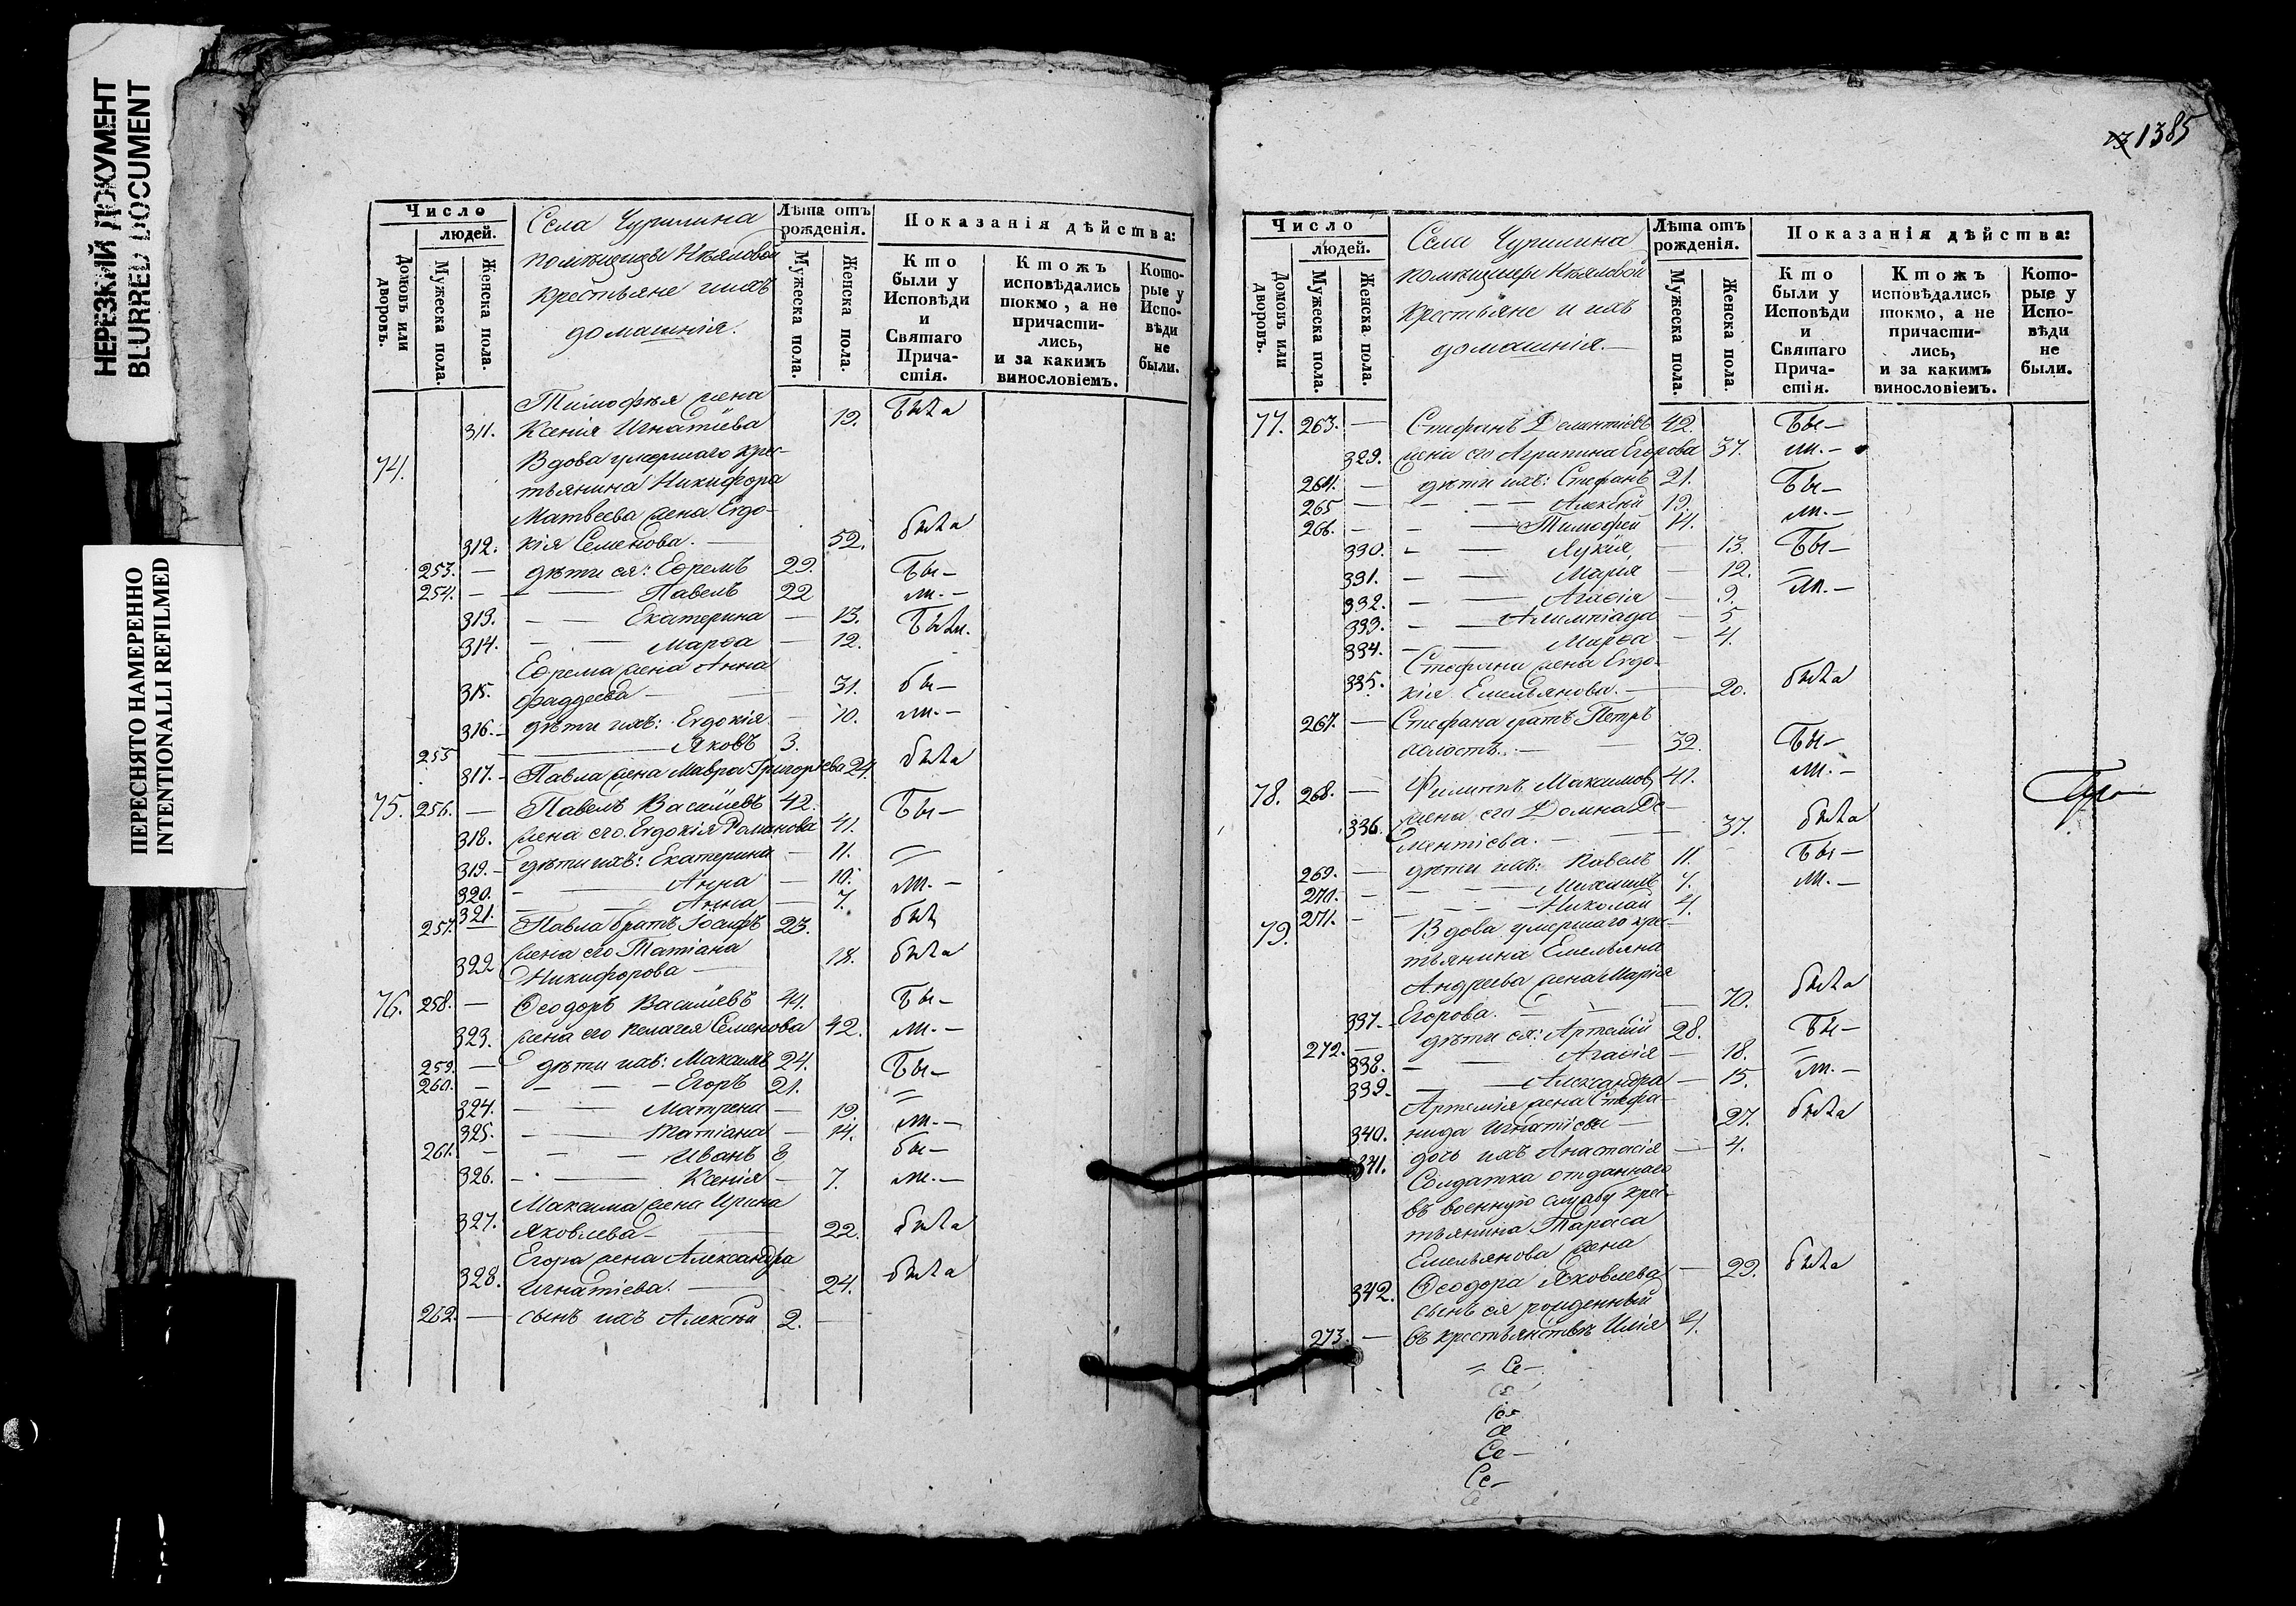 НЕРЕЗКИЙ ДОКУМЕНТ
BLURRED DOCUMENT
ПЕРЕСНЯТО НАМЕРЕННО
INTENTIONALLI REFILMED
Число
людей.
Домовъ или дворовъ.
Мужеска пола.
Женска пола.
Села Чурилина
помѣщицы
крестьяне и ихъ
домашнія.
Лѣта отъ рожденія.
Мужеска пола.
Женска пола.
Показанія дѣйства:
Кто были у Исповѣди и Святаго Причастія.
Ктожъ исповѣдались токмо, а не причастились, и за какимъ винословіемъ.
Которые у Исповѣди не были.
Тимофея жена
311. Ксенія Игнатіева 19. была
74. Вдова умершаго крес-
тьянина Никифора
Матвеева жена Евдо-
312. кія Семенова. — 52. была
253. — дѣти ея: Ефремъ 29. бы—
254. — — Павелъ 22 ли. —
313. — — Екатерина — 13. были.
314. — — Марѳа — 12.
Ефрема жена Анна
315. Фаддеева — — 31. бы—
316. — дѣти ихъ: Евдокія — 10. ли. —
255 — Яковъ 3.
317. — Павла жена Мавра Григорьева 24. была
75. 256. — Павелъ Василіевъ 42. бы—
318. жена его Евдокія Романова 41.
319. — дѣти ихъ: Екатерина — 11. =
320. — — Анна — 10. ли. —
321. — — Анна — 7.
257. — Павла братъ Іосифъ 23. былъ
жена его Татіана
322 Никифорова — 18. была
76. 258. — Ѳеодоръ Василіевъ 44. бы—
323. жена его Пелагея Семенова 42. ли. —
259. — дѣти ихъ: Максимъ 24. бы—
260. — — — Егоръ 21. =
324. — — Матрена — 19.
325. — — Татіана — 14. ли. —
261. — — — Иванъ 8 бы—
326. — — Ксенія — 7. ли. —
Максима жена Ирина
327. Яковлева — — 22. была
Егора жена Александра
328. Игнатіева. — 24. была
262. — сынъ ихъ Алексѣй 2. —
1385
Число
людей.
Домовъ или дворовъ.
Мужеска пола.
Женска пола.
Села Чурилина
помѣщицы
крестьяне и ихъ
домашнія. —
Лѣта отъ рожденія.
Мужеска пола.
Женска пола.
Показанія дѣйства:
Кто были у Исповѣди и Святаго Причастія.
Ктожъ исповѣдались токмо, а не причастились, и за какимъ винословіемъ.
Которые у Исповѣди не были.
77. 263. — Стефанъ Дементіевъ 42. бы—
329. жена его Агрипина Егорова 37. ли. —
264. — дѣти ихъ: Стефанъ 21. бы—
265 — — — Алексѣй 19. ли. —
266. — — — Тимофей 14.
330. — — Лукія, — 13. бы—
331. — — Марія — 12. =
332. — — Агаѳія — 9. ли. —
333. — — Алимпіада — 5
334. — — Марѳа — 4.
Стефана жена Евдо-
335. кія Емельянова. — 20. была
267. — Стефана братъ Петръ
холостъ. — — 32. бы—
78. 268. — Филиппъ Максимовъ 40. ли. —
336. жена его Домна Де-
ментіева. — — 37. была
269. — дѣти ихъ: Павелъ 11. бы—
270. — — — Михаилъ 7. ли. —
271. — — — Николай 4.
79. Вдова умершаго крес-
тьянина Емельяна
Андреева жена Марія
337. — Егорова. — — 70. была
272. — дѣти ея: Артемій 28. бы—
338. — — Агаѳія — 18. =
339. — — Александра — 15. ли. —
Артемія жена Стефа-
340. нида Игнатіева — 27. была
341. дочь ихъ Анастасія — 4.
Солдатка отданнаго
въ военную службу крес-
тьянина Тараса
Емельянова жена
342. Ѳеодора Яковлева — 29. была
сынъ ея рожденный
273. — въ крестьянствѣ Илія 4.